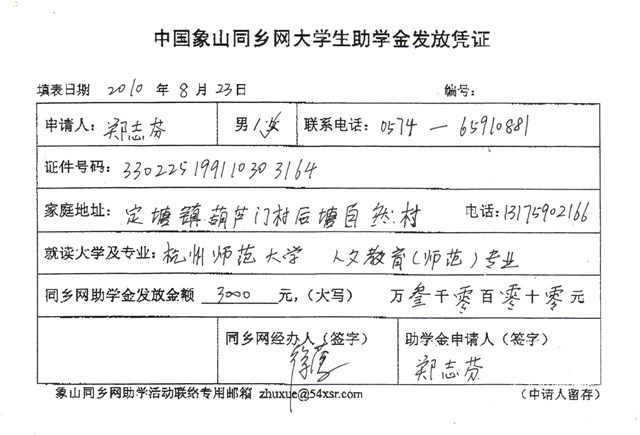 中国象山同乡网大学生助学金发放凭证
填表日期 2010 年 8 月 23 日 编号:
申请人: 郑志芬 男/女 联系电话: 0574 — 65910881
证件号码: 330225199110303164
家庭地址: 定塘镇葫芦门村后塘自然村 电话: 13175902166
就读大学及专业: 杭州师范大学 人文教育(师范)专业
同乡网助学金发放金额 3000 元,(大写) 万叁千零百零十零元
同乡网经办人(签字) 助学金申请人(签字)
郑志芬
象山同乡网助学活动联络专用邮箱 zhuxue@54xsr.com (申请人留存)